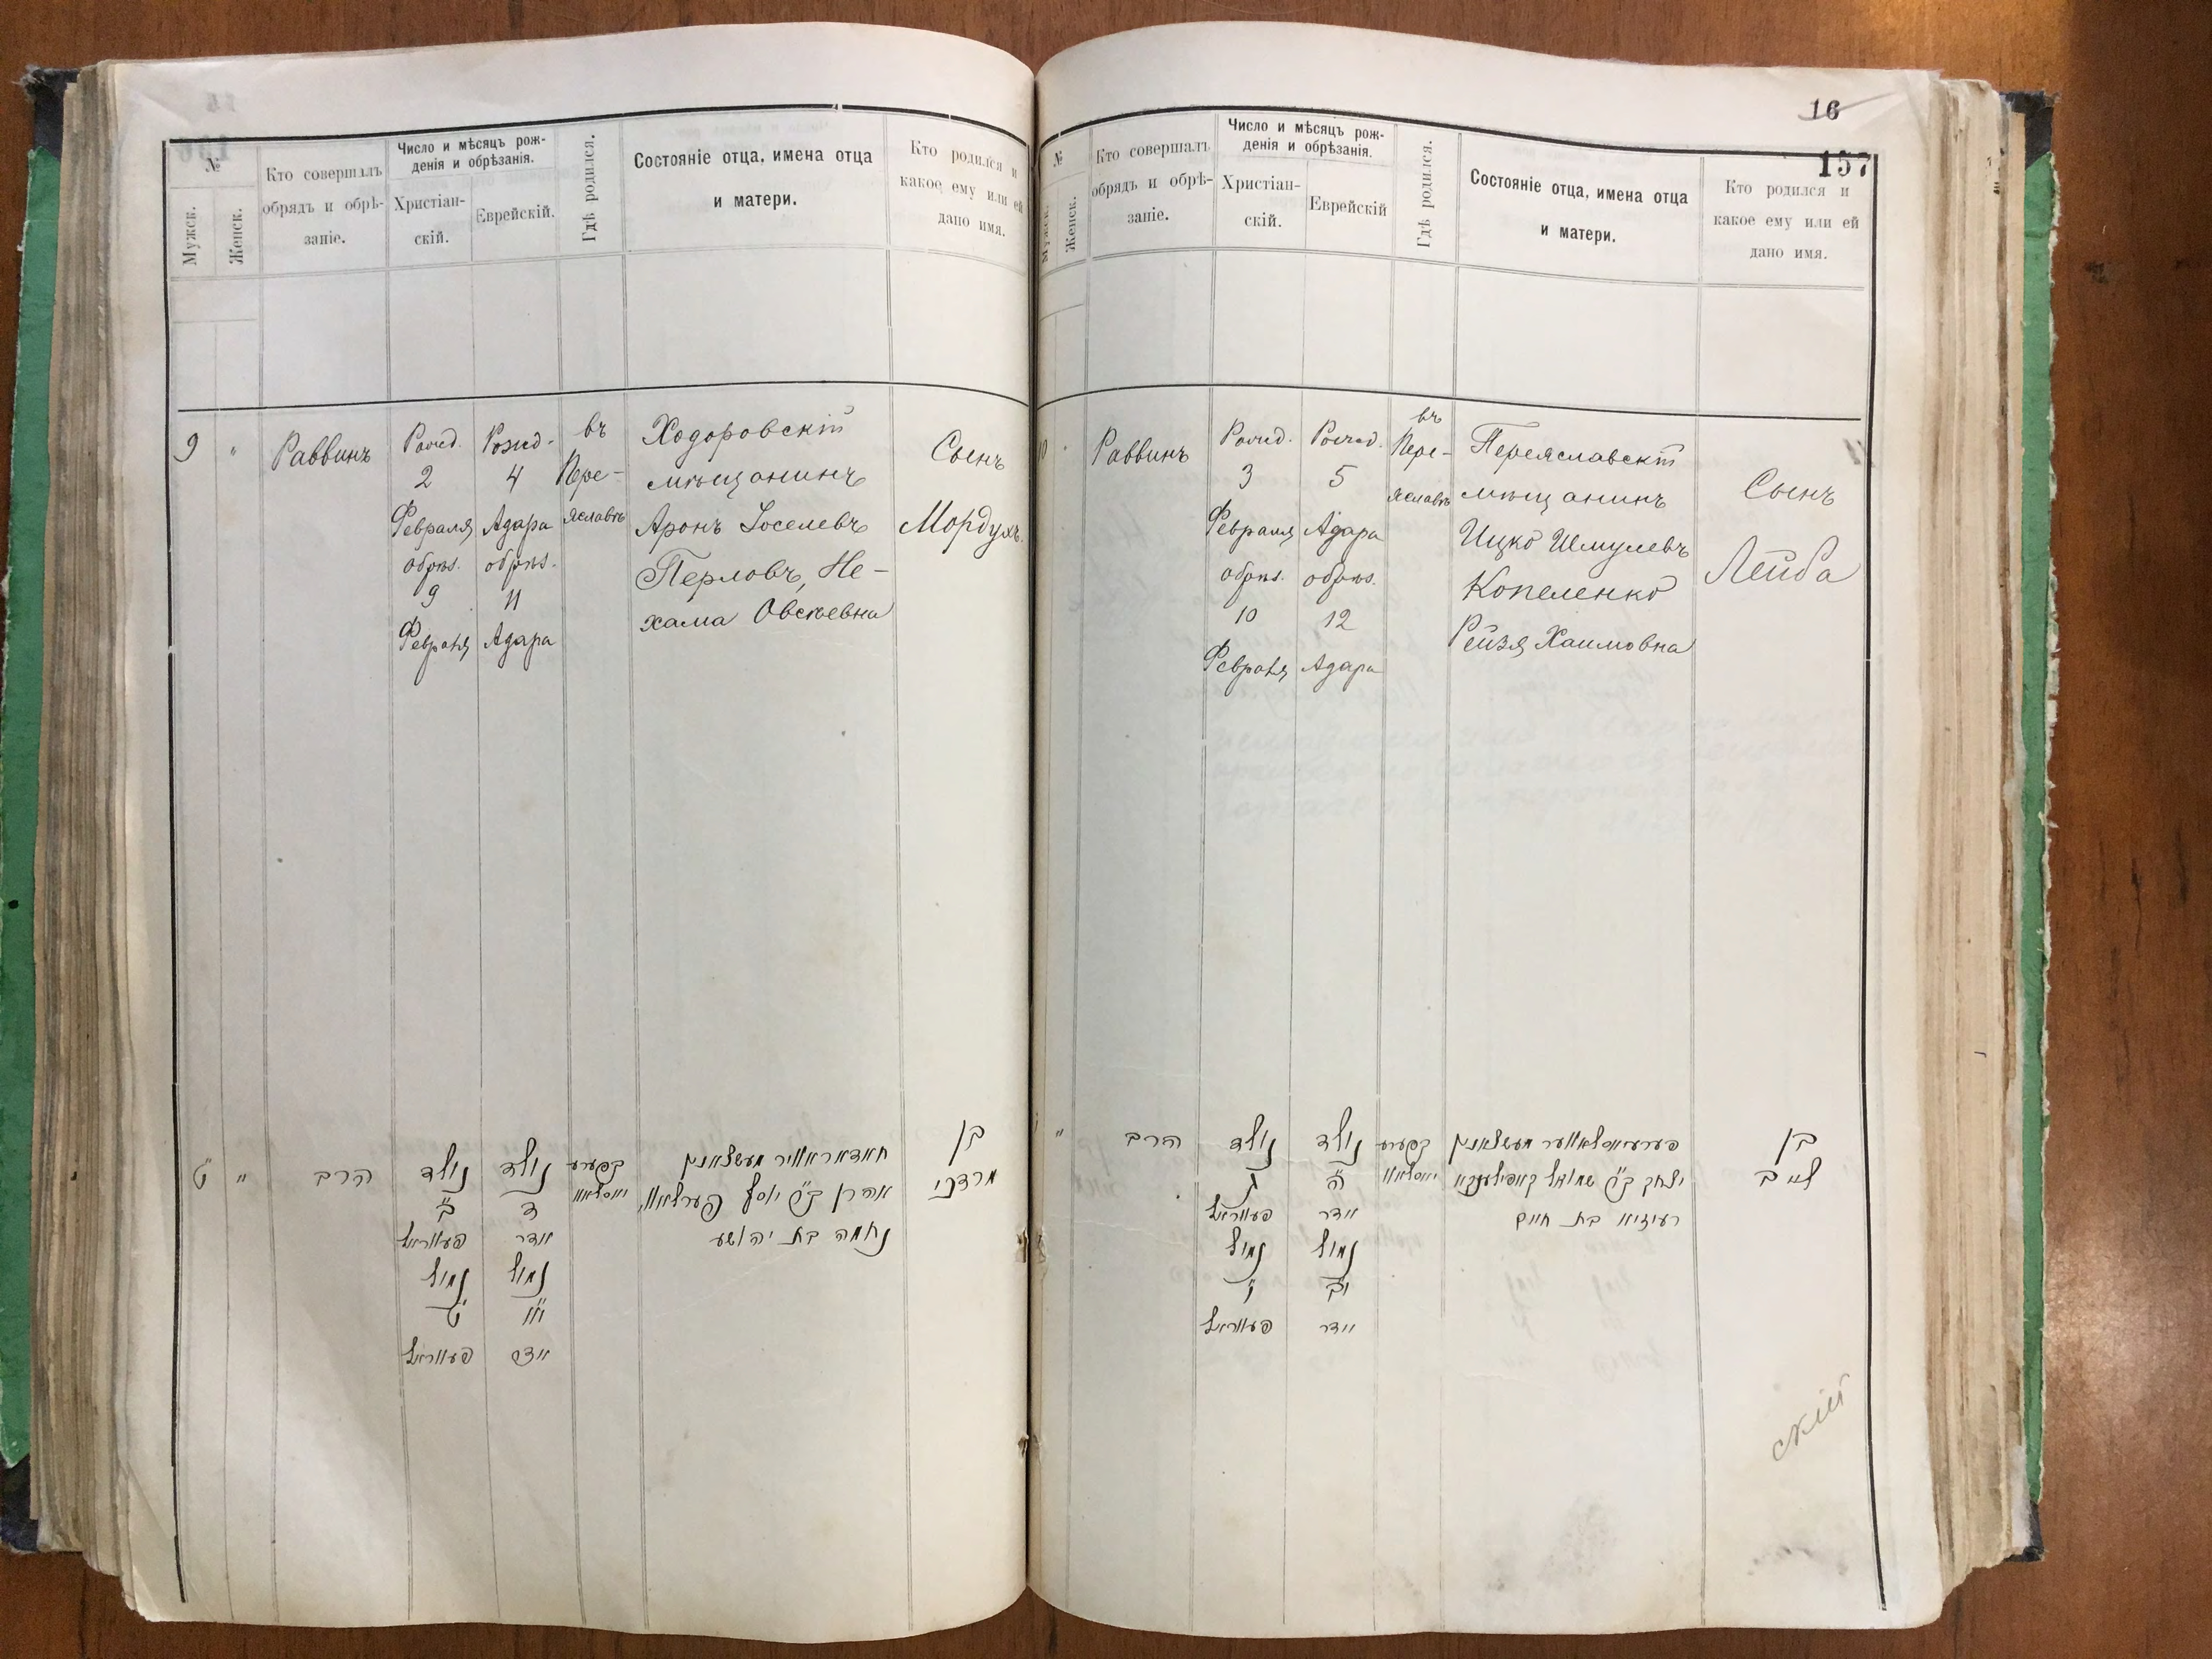 №
Мужск.
Женск.
Кто совершалъ
обрядъ и обрѣ-
заніе.
Число и мѣсяцъ рож-
денія и обрѣзанія.
Христіан-
скій.
Еврейскій.
Гдѣ родился.
Состояніе отца, имена отца
и матери.
Кто родился и
какое ему или ей
дано имя.
9
"
Раввинъ
Рожд.
2
Февраля
обрѣз.
9
Февраля
Рожд.
4
Адара
обрѣз.
11
Адара
въ
Пере-
яславѣ
Ходоровскій
мѣщанинъ
Аронъ Іоселевъ
Перловъ, Не-
хама Овсѣевна
Сынъ
Мордухъ.
ט
"
הרב
נולד
ב
פעווראל
נמול
ט
פעווראל
נולד
ד
אדר
נמול
יא
אדר
בפערע
יאסלאוו
חאדאראוויר מעשצאנין
אהרן ב"ר יוסף פערלאוו,
נחמה בת יהושע
בן
מרדכי
16
157
№
Мужск.
Женск.
Кто совершалъ
обрядъ и обрѣ-
заніе.
Число и мѣсяцъ рож-
денія и обрѣзанія.
Христіан-
скій.
Еврейскій
Гдѣ родился.
Состояніе отца, имена отца
и матери.
Кто родился и
какое ему или ей
дано имя.
10
Раввинъ
Рожд.
3
Февраля
обрѣз.
10
Февраля
Рожд.
5
Адара
обрѣз.
12
Адара
въ
Пере-
яславѣ
Переяславскій
мѣщанинъ
Ицко Шмулевъ
Копеленко
Рейзя Хаимовна
Сынъ
Лейба
"
הרב
נולד
ג
פעווראל
נמול
י
פעווראל
נולד
ה
אדר
נמול
יב
אדר
בפערע
יאסלאוו
פערעיאסלאווער מעשצאנין
יצחק ב"ר שמואל קאפילענקא
רעיזיא בת חיים
בן
לייב
скій